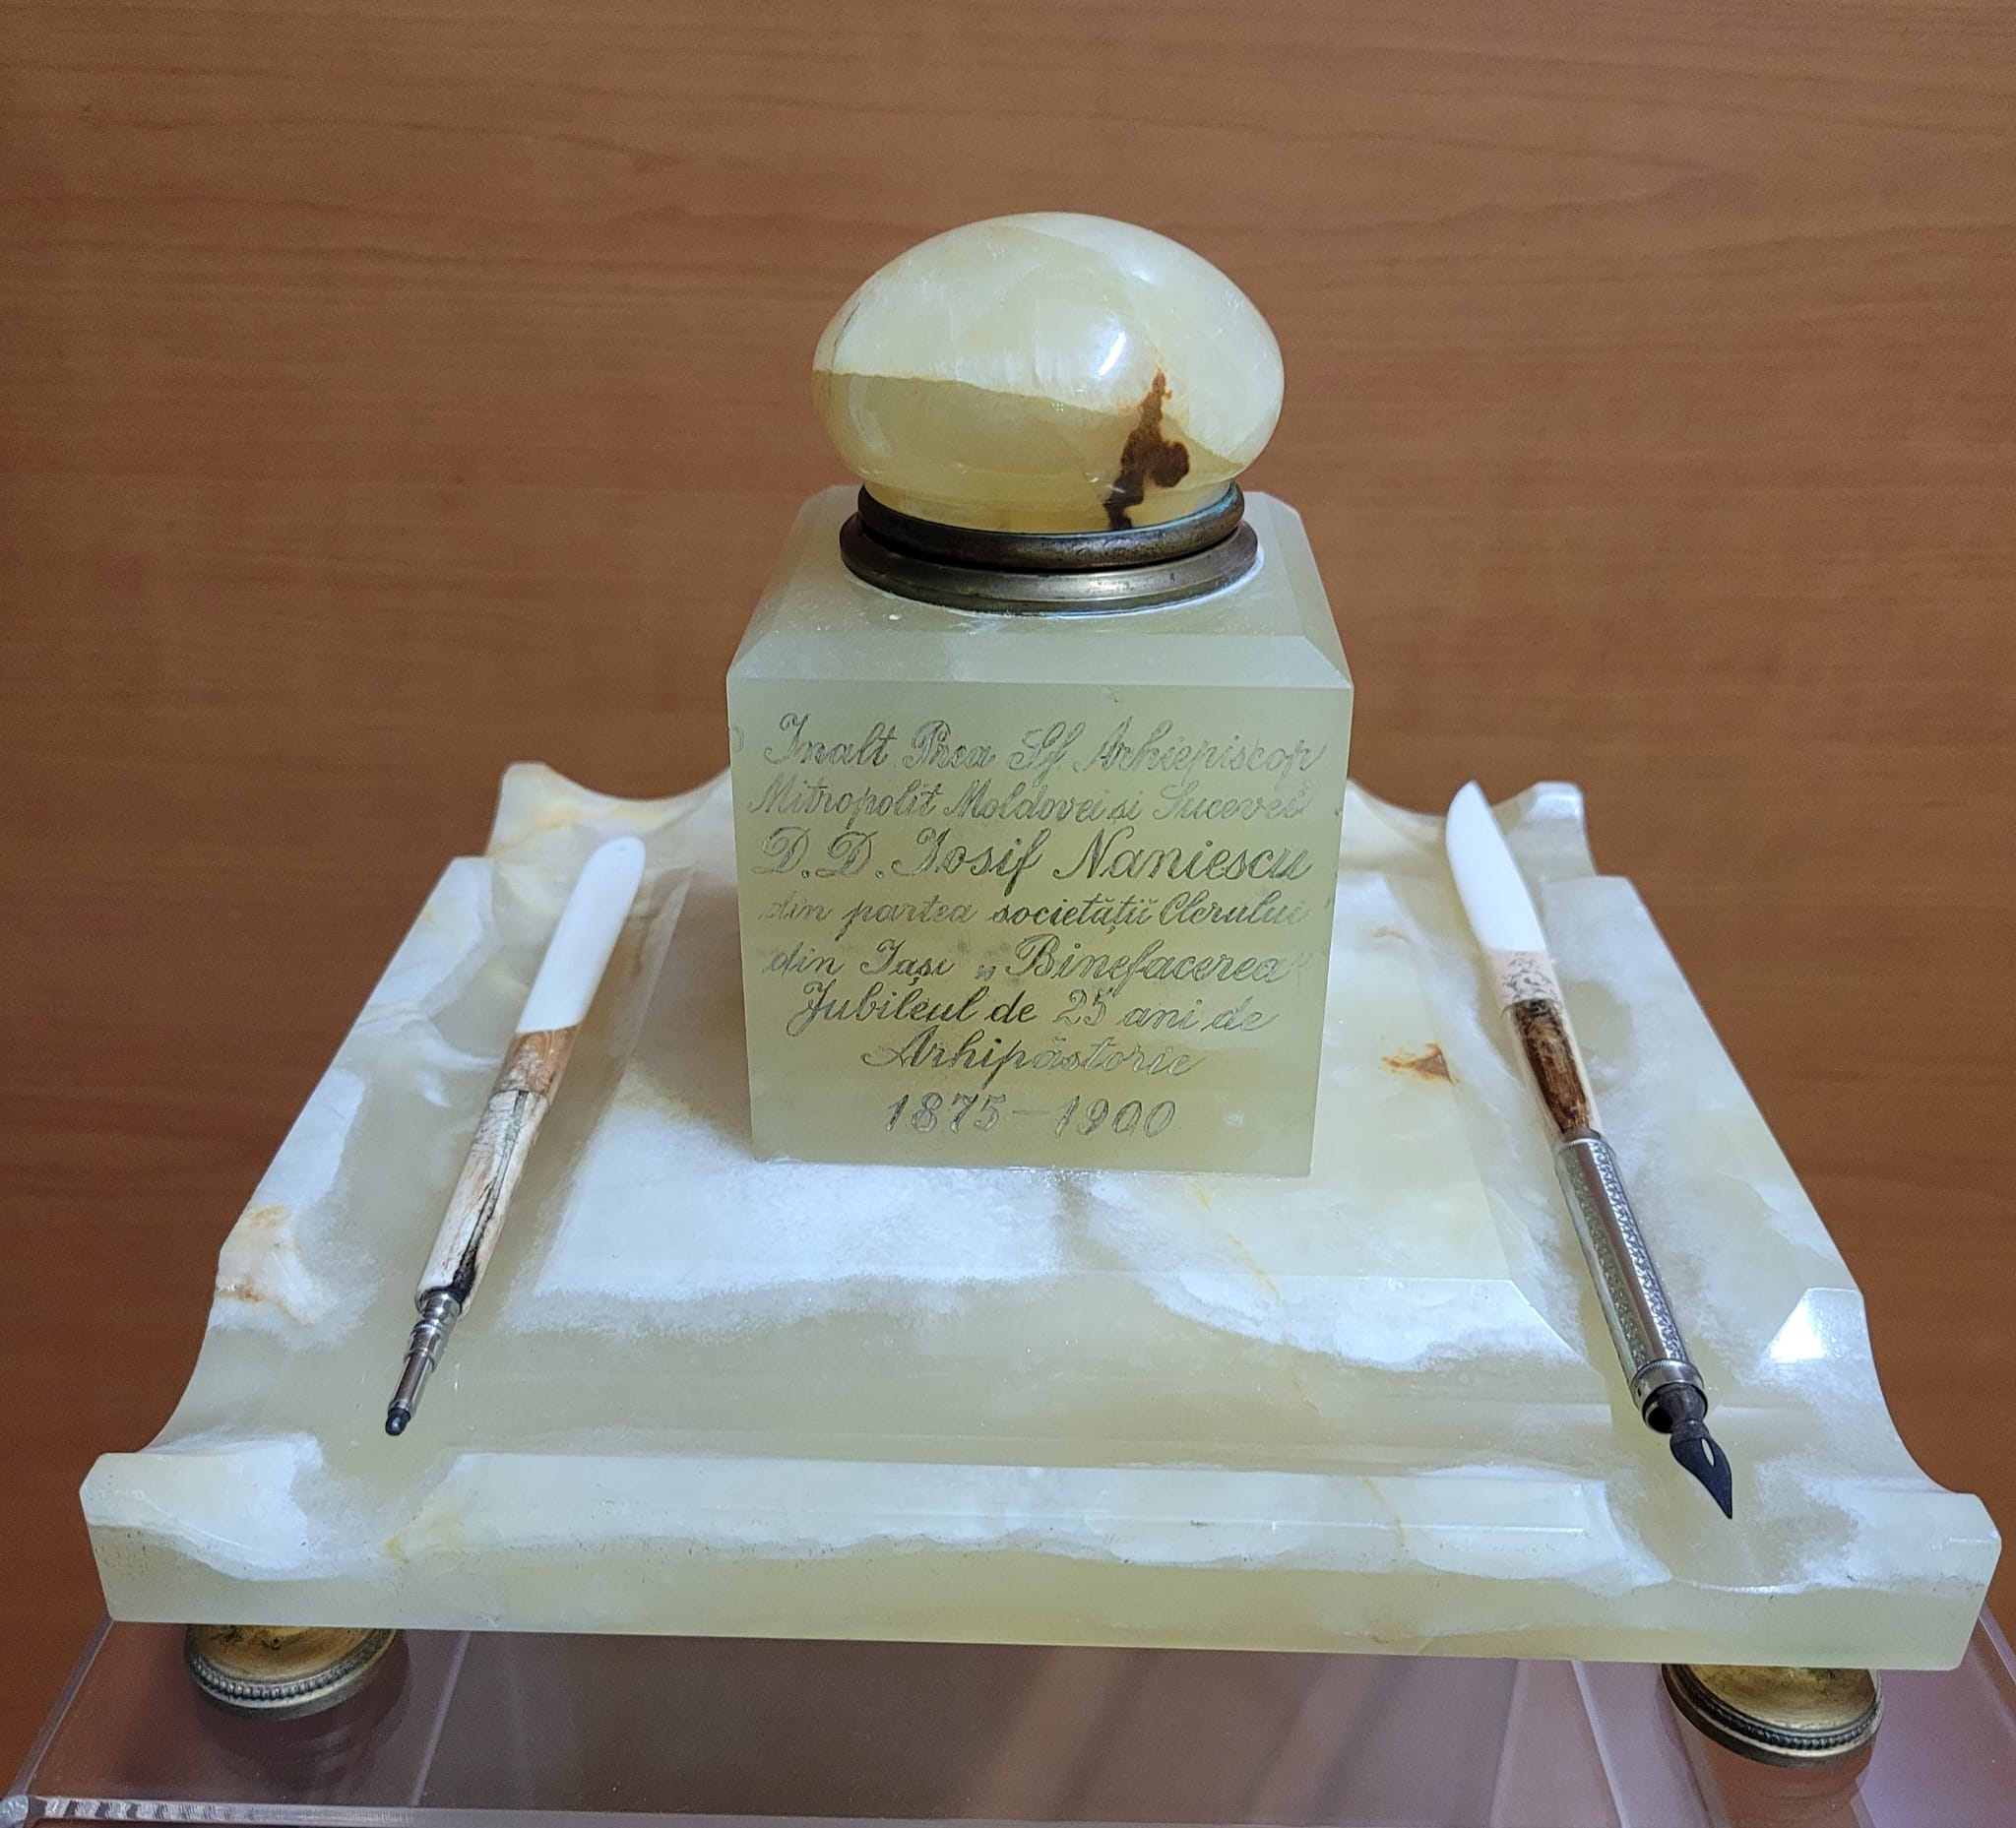 Inalt Prea Sf Arhiepiscop
Mitropolit Moldovei si Sucevei
D.D. Iosif Naniescu
din partea societăței Clerului
din Iași „Binefacerea"
Jubileul de 25 ani de
Arhipăstorie
1875–1900